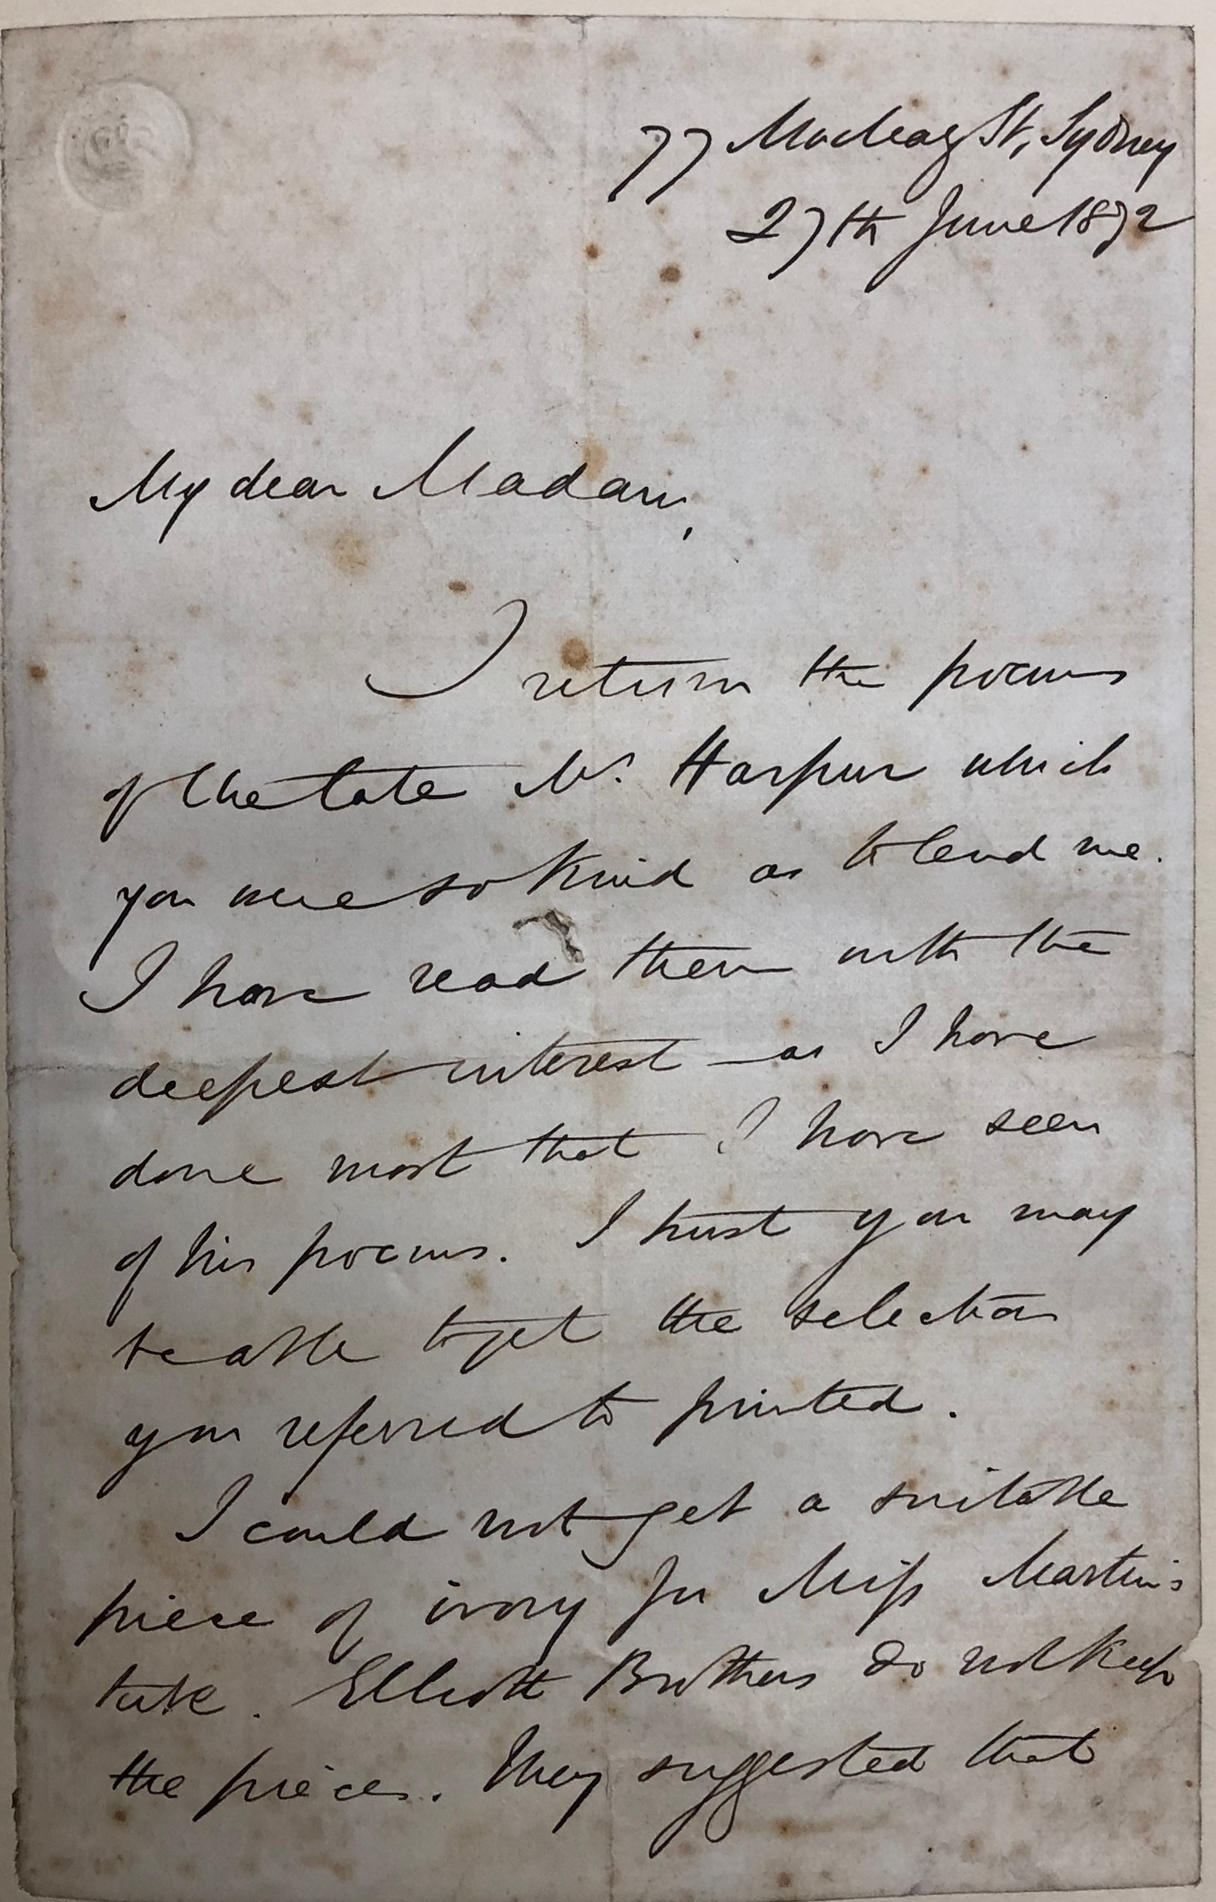 77 Macleay St, Sydney
27th June 1872
My dear Madam,
I return the poems
of the late Mr. Harpur which
you were so kind as to lend me.
I have read them with the
deepest interest – as I have
done most that I have seen
of his poems. I trust you may
be able to get the selection
you referred to printed.
I could not get a suitable
piece of ivory for Miss Martin's
tube. Elliott Brothers do not keep
the pieces. They suggested that